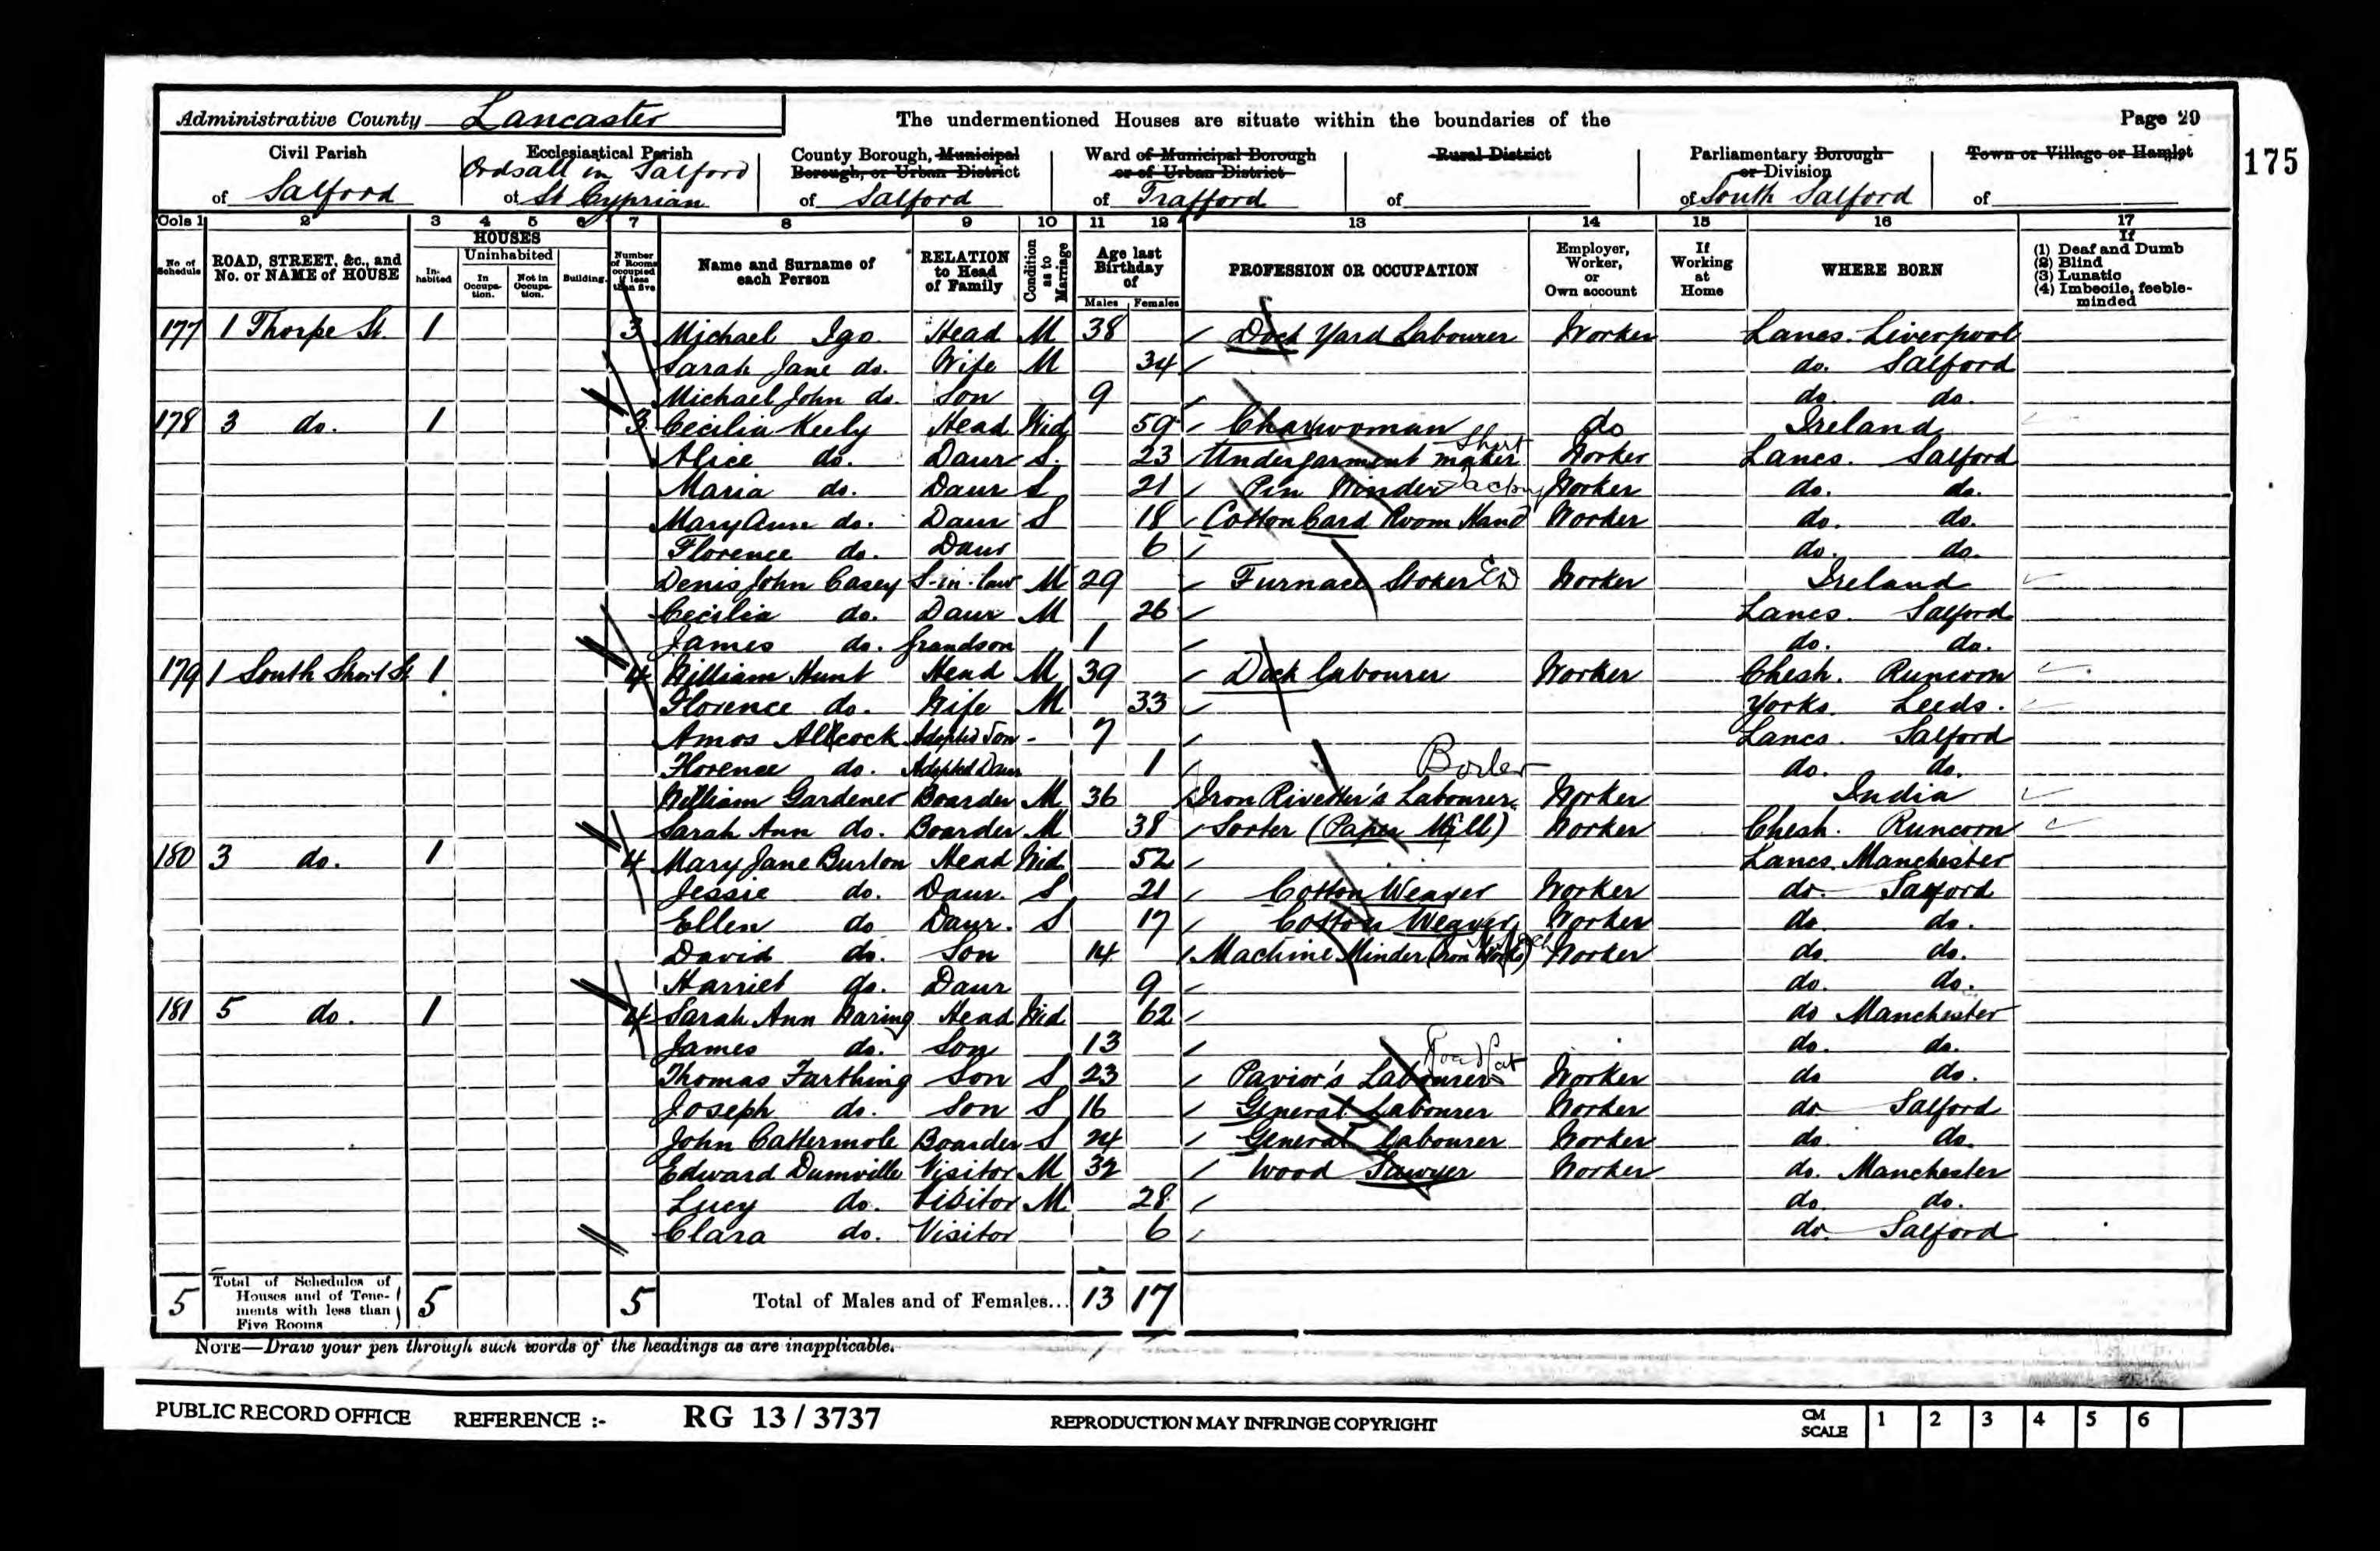 Administrative County Lancaster
The undermentioned Houses are situate within the boundaries of the
Page 29
175
Civil Parish of Salford
Ecclesiastical Parish Ordsall in Salford of St Cyprian
County Borough, Municipal Borough, or Urban District of Salford
Ward of Municipal Borough or of Urban District of Trafford
Rural District of
Parliamentary Borough or Division of South Salford
Town or Village or Hamlet of
Cols 1 2 3 4 5 6 7 8 9 10 11 12 13 14 15 16 17
No. of Schedule
ROAD, STREET, &c., and No. or NAME of HOUSE
HOUSES
In-habited
Uninhabited
In Occupa-tion.
Not in Occupa-tion.
Building.
Number of Rooms occupied if less than five
Name and Surname of each Person
RELATION to Head of Family
Condition as to Marriage
Age last Birthday of
Males Females
PROFESSION OR OCCUPATION
Employer, Worker, or Own account
If Working at Home
WHERE BORN
If (1) Deaf and Dumb (2) Blind (3) Lunatic (4) Imbecile, feeble-minded
177 1 Thorpe St. 1 3 Michael Igo Head M 38 Dock Yard Labourer Worker Lancs. Liverpool
Sarah Jane do. Wife M 34 do. Salford
Michael John do. Son 9 do. do.
178 3 do. 1 3 Cecilia Keely Head Wid 59 Charwoman do Ireland
Alice do. Daur S. 23 Undergarment maker Shirt Worker Lancs. Salford
Maria do. Daur S 21 Pin Winder Worker do. do.
Mary Ann do. Daur S 18 Cotton Card Room Hand Worker do. do.
Florence do. Daur 6 do. do.
Denis John Casey S-in-law M 29 Furnace Stoker Worker Ireland
Cecilia do. Daur M 26 Lancs. Salford
James do. Grandson 1 do. do.
179 1 South Short St 1 4 William Hunt Head M 39 Dock labourer Worker Chesh. Runcorn
Florence do. Wife M 33 Yorks. Leeds.
Amos Allcock Adopted Son - 7 Lancs. Salford
Florence do. Adopted Daur 1 do. do.
Boiler
William Gardener Boarder M 36 Iron Rivetter's Labourer Worker India
Sarah Ann do. Boarder M 38 Sorter (Paper Mill) Worker Chesh. Runcorn
180 3 do. 1 4 Mary Jane Burton Head Wid 52 Lancs. Manchester
Jessie do. Daur. S 21 Cotton Weaver Worker do. Salford
Ellen do Daur. S 17 Cotton Weaver Worker do. do.
David do. Son 14 Machine Minder (Iron Works) Worker do. do.
Harriet do. Daur 9 do. do.
181 5 do. 1 4 Sarah Ann Waring Head Wid 62 do Manchester
James do. Son 13 do. do.
Thomas Farthing Son S 23 Pavior's Labourer Worker do do.
Joseph do. Son S 16 General Labourer Worker do Salford
John Cattermole Boarder S 24 General Labourer Worker do. do.
Edward Dumville Visitor M 32 Wood Sawyer Worker do. Manchester
Lucy do. Visitor M 28 do. do.
Clara do. Visitor 6 do. Salford
5 Total of Schedules of Houses and of Tene-ments with less than Five Rooms 5 5 Total of Males and of Females... 13 17
NOTE—Draw your pen through such words of the headings as are inapplicable.
PUBLIC RECORD OFFICE REFERENCE :- RG 13 / 3737 REPRODUCTION MAY INFRINGE COPYRIGHT CM SCALE 1 2 3 4 5 6